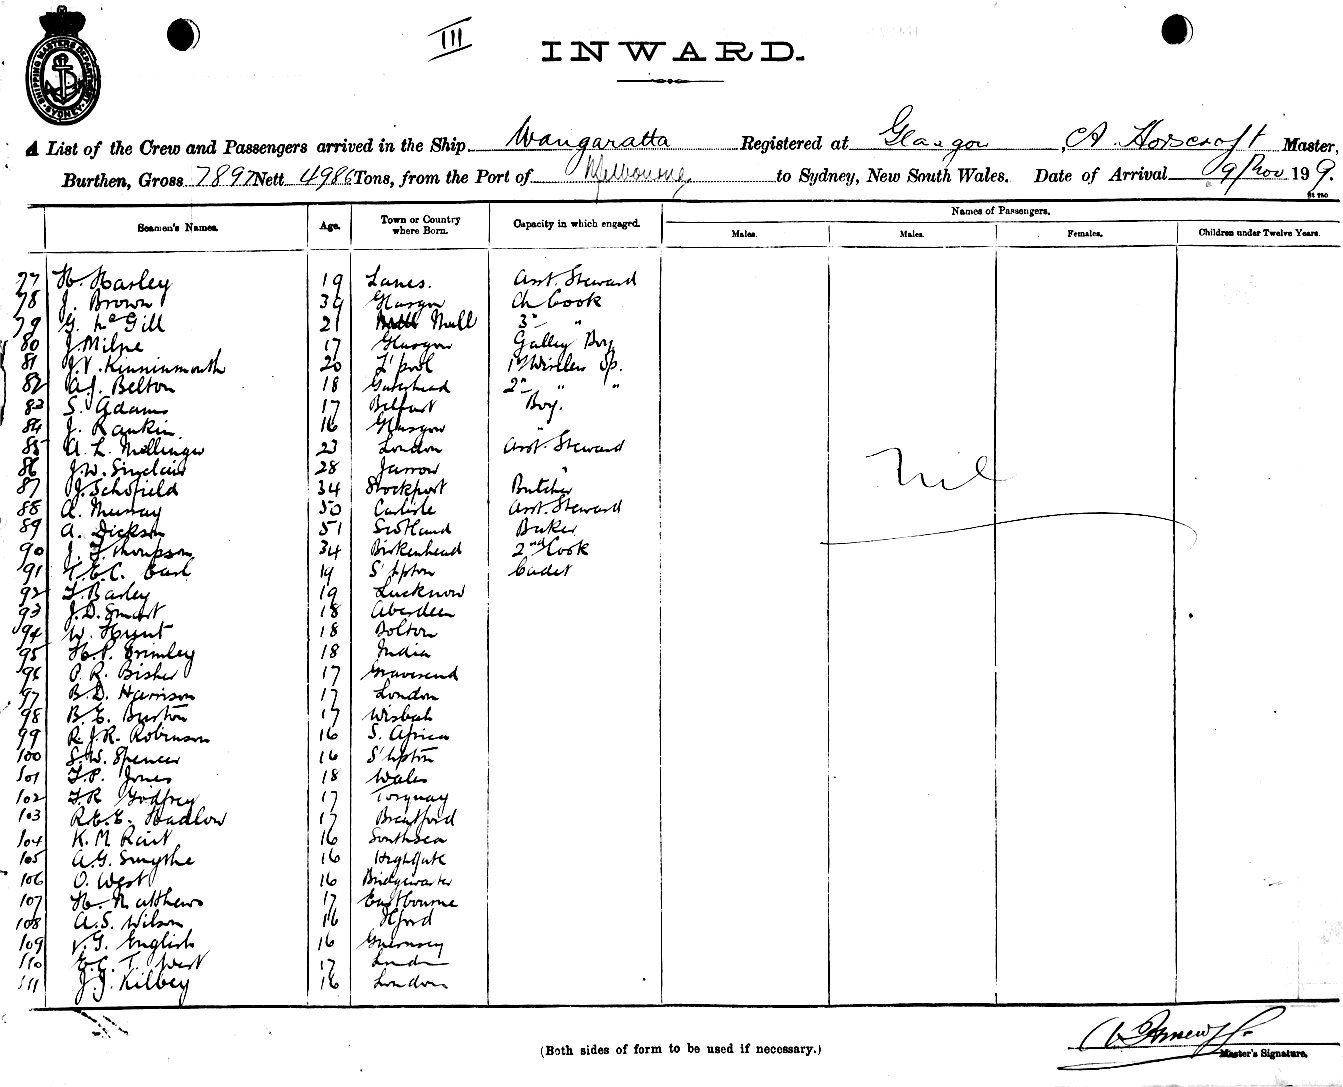 III
SHIPPING MASTERS DEPARTMENT SYDNEY
INWARD.
A List of the Crew and Passengers arrived in the Ship Wangaratta Registered at Glasgow, A. Horscroft Master,
Burthen, Gross 7897 Nett 4986 Tons, from the Port of Melbourne to Sydney, New South Wales. Date of Arrival 9/Nov 199.
Seamen's Names. Age. Town or Country where Born. Capacity in which engaged. Names of Passengers.
Males. Males. Females. Children under Twelve Years.
77 H. Harley 19 Lancs. Asst. Steward
78 J. Brown 39 Glasgow Ch Cook
79 G. McGill 21 Mull 3rd "
80 J. Milne 17 Glasgow Galley Boy
81 J.V. Kinninmonth 20 L'pool 1st Wireless Op.
82 A.J. Belton 18 Gateshead 2nd " "
83 S. Adams 17 Belfast Boy.
84 J. Rankin 16 Glasgow "
85 A. L. Mellinger 23 London Asst. Steward
86 J.W. Sinclair 28 Jarrow "
87 J. Schofield 34 Stockport Butcher
88 A. Murray 50 Carlisle Asst. Steward
89 A. Dickson 51 Scotland Baker
90 J. Thompson 34 Birkenhead 2nd Cook
91 T.E.C. Earl 19 S'hpton Cadet
92 F. Barley 19 Lucknow
93 J.D. Smart 18 Aberdeen
94 W. Hunt 18 Bolton
95 H.P. Brimley 18 India
96 P. R. Bisher 17 Gravesend
97 B.D. Harrison 17 London
98 B.E. Burton 17 Wisbech
99 R.J.R. Robinson 16 S. Africa
100 S.W. Spencer 16 S'hpton
101 F.P. Jones 18 Wales
102 F.R Godfrey 17 Torquay
103 R.E.E. Hadlow 17 Brentford
104 K.M Rait 16 Southsea
105 A.G. Smythe 16 Highgate
106 O. West 16 Bridgewater
107 H. Matthews 17 Eastbourne
108 A.S. Wilson 16 Ilford
109 V.G. English 16 Guernsey
110 E.C. T. West 17 London
111 J.J. Kilbey 16 London
Nil
(Both sides of form to be used if necessary.)
Master's Signature.